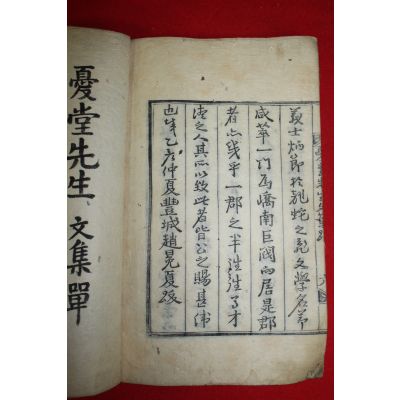 義士炳節於龍蛇之亂文學名節
咸萃一門爲嶠南巨閥而居是郡
者亦幾乎一郡之半詵詵多才
德之人其所以致此者皆公之賜甚偉
也歲乙亥仲夏豐城趙晃夏跋
憂堂先生文集單